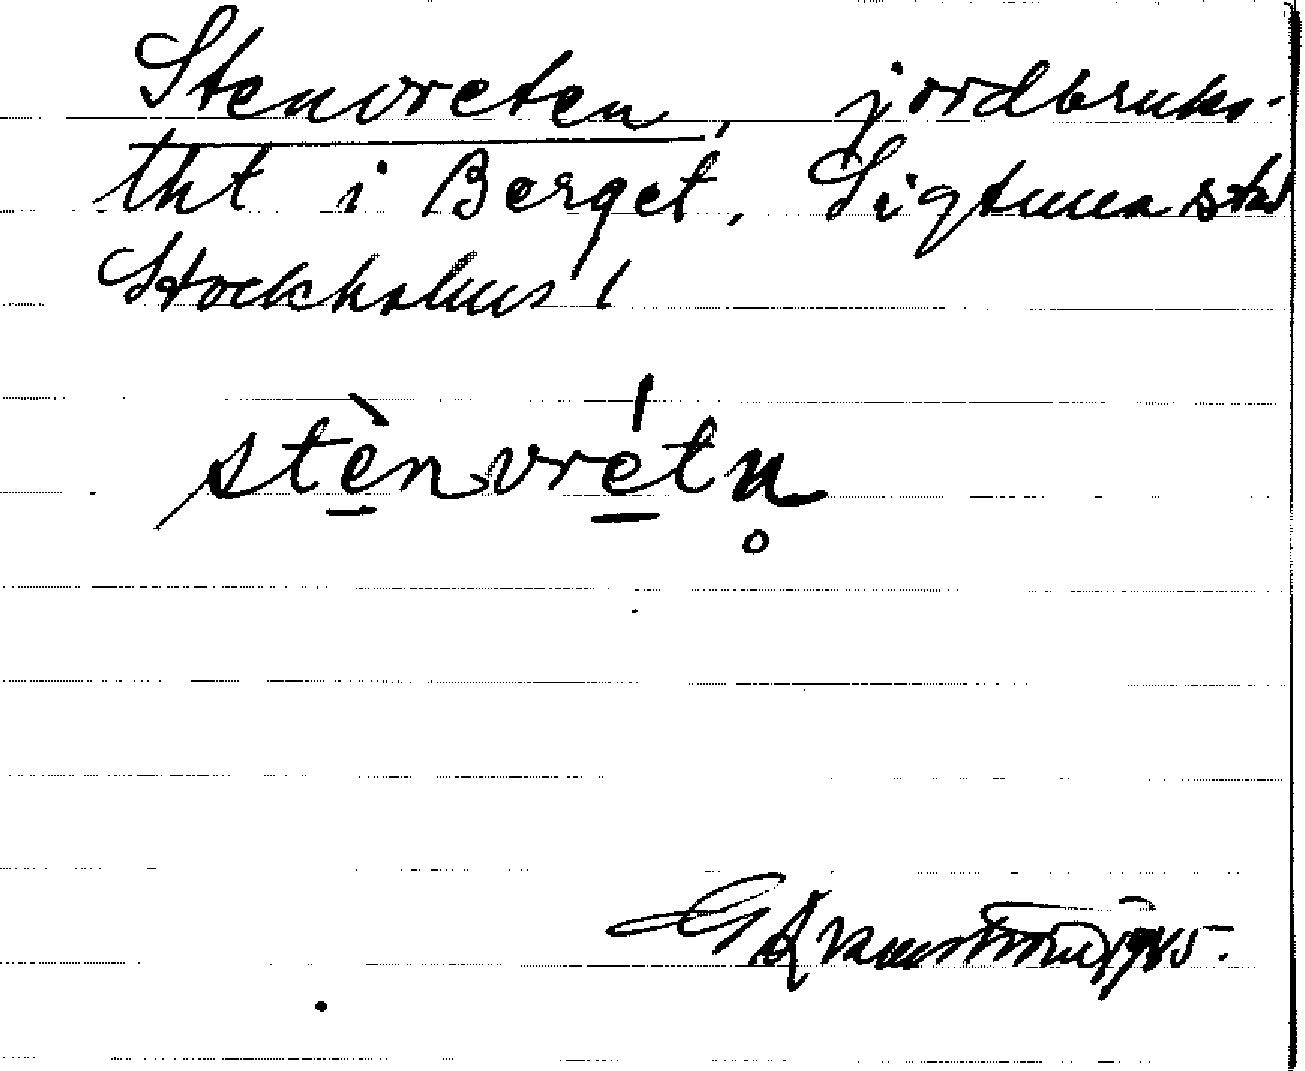 Stenvreten, jordbruks-
tht i Berget, Sigtuna std
Stockholms l
stènvrétn̥
1945.